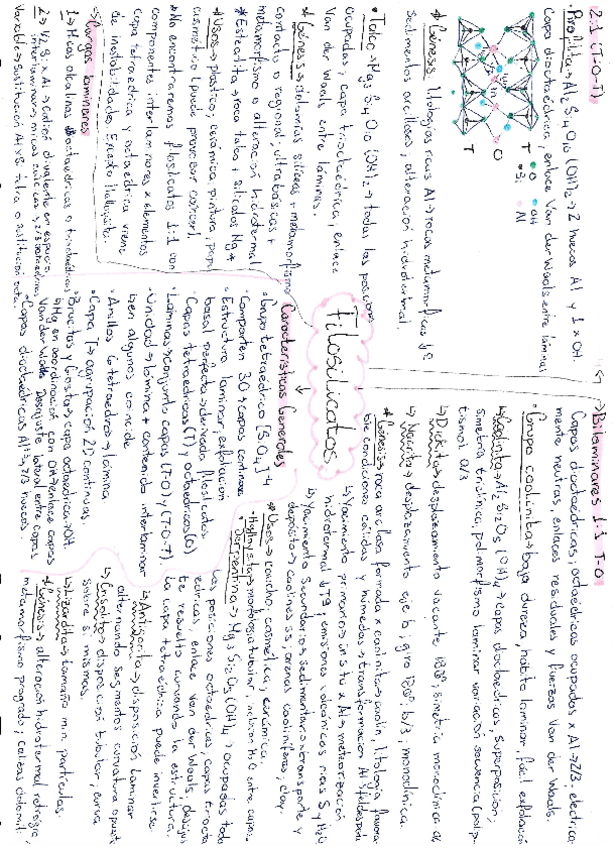 Filosilicatos
Características Generales
• Grupo tetraédrico [SiO4]-4
• Comparten 3O → capas continuas
• Estructura laminar, exfoliación
basal perfecta → derivado filosilicatos
• Capas tetraédricas (T) y octaédricas (O)
• Láminas → conjunto capas (T-O) y (T-O-T)
• Unidad → lámina + contenido interlaminar
↳ en algunos coincide
• Anillos 6 tetraedros → lámina
• Capa T → agrupación 2D continuas.
• Brucita y Gibsita → capa octaédrica → OH.
↳ Mg en coordinación con OH → enlace capas
Van der Waals. Desajuste lateral entre capas
• Capas dioctaédricas Al+3, 1/3 huecos.
→ Bilaminares 1:1 T-O
Capas dioctaédricas, octaédricos ocupados x Al → 2/3, eléctrica-
mente neutras, enlaces residuales y fuerzas Van der Waals.
• Grupo caolinita → baja dureza, hábito laminar, fácil exfoliación
↳ Caolinita → Al2Si2O5(OH)4 → capas dioctaédricas superposición,
simetría triclínica, polimorfismo laminar variación secuencia (polip-
tismo), a/3
↳ Dickita → desplazamiento vacante, 180º, simetría monoclínica a/3
↳ Nacrita → desplazamiento eje b; giro 180º; b/3, monoclínica.
* Génesis → roca arcillosa formada x caolinita → caolín, litología favora-
ble condiciones cálidas y húmedas → transformación Al feldespato
↳ Yacimiento primario → in situ x Al, meteorización
hidrotermal ↓Tª, emisiones volcánicas ricas S y H2O
↳ Yacimiento Secundario → sedimentario → transporte y
depósito → caolines ss, arenas caoliníferas, clay.
* Usos → caucho, cosmética, cerámica.
• Halloysita → morfología tubular, inclusión H2O entre capas
• Serpentina → Mg3Si2O5(OH)4 → ocupadas todas
las posiciones octaédricas, capas triocta-
édricas, enlace Van der Waals, desajus-
te resuelto curvando la estructura,
la capa tetraédrica puede invertirse.
↳ Antigorita → disposición laminar
alternando segmentos curvatura opuesta
↳ Crisotilo → disposición tubular, curva
sobre sí misma.
↳ Lizardita → tamaño mín. partículas.
* Génesis → alteración hidrotermal retrógra-
metamorfismo progrado; calizas dolomít.
2:1 (T-O-T)
• Pirofilita → Al2Si4O10(OH)2 → 2 huecos Al y 1 x OH.
Capa dioctaédrica, enlace Van der Waals entre láminas
T
O
T
• O
• OH
• Si
• Al
* Génesis: litologías ricas Al → rocas metamórficas
sedimentos arcillosos, alteración hidrotermal.
• Talco → Mg3Si4O10(OH)2 → todas las posiciones
ocupadas; capa trioctaédrica, enlace
Van der Waals entre láminas.
* Génesis → dolomías silíceas + metamorfismo
contacto o regional; ultrabásicas +
metamorfismo o alteración hidrotermal
* Esteatita → roca talco + silicatos Mg
* Usos → plástico, cerámica, pintura, papel
cosmético (puede provocar cáncer).
* No encontraremos filosilicatos 1:1 con
componentes interlaminares x elementos
capa tetraédrica y octaédrica viene
de inestabilidades. Excepto halloysita.
→ Cargas laminares
1 → Micas alcalinas dioctaédricas o trioctaédricas
2 → 1/2 Si x Al → catión divalente en espacio
interlaminar, micas cálcicas → 2/3 octaédricas
Variable → sustitución Al x Si tetra o sustitución octa.